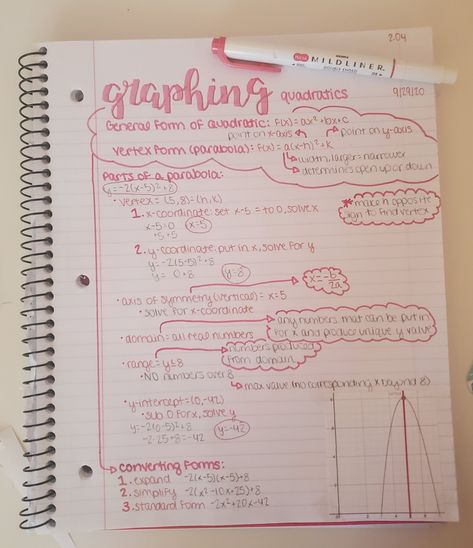 2.04
MILDLINER
graphing quadratics
9/29/20
General form of quadratic: F(x)=ax²+bx+c
point on x-axis
point on y-axis
vertex form (parabola): F(x)=a(x-h)²+k
width, larger=narrower
determines open up or down
parts of a parabola:
y=-2(x-5)²+8
• vertex = (5,8)=(h,k)
* make h opposite sign to find vertex
1. x-coordinate: set x-5 = to 0, solve x
x-5=0
x=5
+5 +5
2. y-coordinate: put in x, solve for y
y=-2(5-5)²+8
y= 0+8
y=8
x=-b/2a
• axis of symmetry (vertical)= x=5
• solve for x-coordinate
• domain= all real numbers
any numbers that can be put in
for x and produce unique y value
• range= y≤8
numbers produced
from domain
• NO numbers over 8
max value (no corresponding x beyond 8)
• y-intercept=(0,-42)
• sub 0 for x, solve y
y=-2(0-5)²+8
-2·25+8=-42
y=-42
converting forms:
1. expand -2(x-5)(x-5)+8
2. simplify -2(x²-10x+25)+8
3. standard form -2x²+20x-42